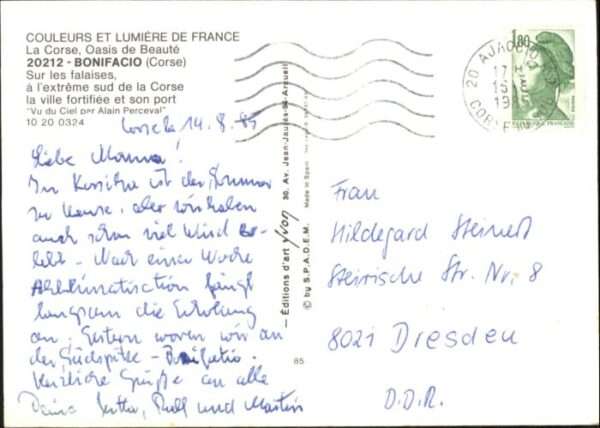 COULEURS ET LUMIÈRE DE FRANCE
La Corse, Oasis de Beauté
20212 - BONIFACIO (Corse)
Sur les falaises,
à l'extrême sud de la Corse
la ville fortifiée et son port
"Vu du Ciel par Alain Perceval"
10 20 0324
14.8.85
Liebe Mama!
In ist der Sommer
zu Hause, aber wir haben
auch schon viel Wind er-
lebt - Nach einer Woche
Akklimatisation fängt
langsam die Erholung
an. Gestern waren wir an
der Südspitze - Bonifatio.
Herzliche Grüße an alle
Deine Jutta, Rolf und Martin
— Éditions d'art yvon 30, Av. Jean-Jaurès-94-Arcueil
© by S.P.A.D.E.M. Made in Spain
85
1,80
20 AJACCIO
17 H
15
CORSE
Frau
Hildegard Steinert
Steirische Str. Nr. 8
8021 Dresden
D.D.R.